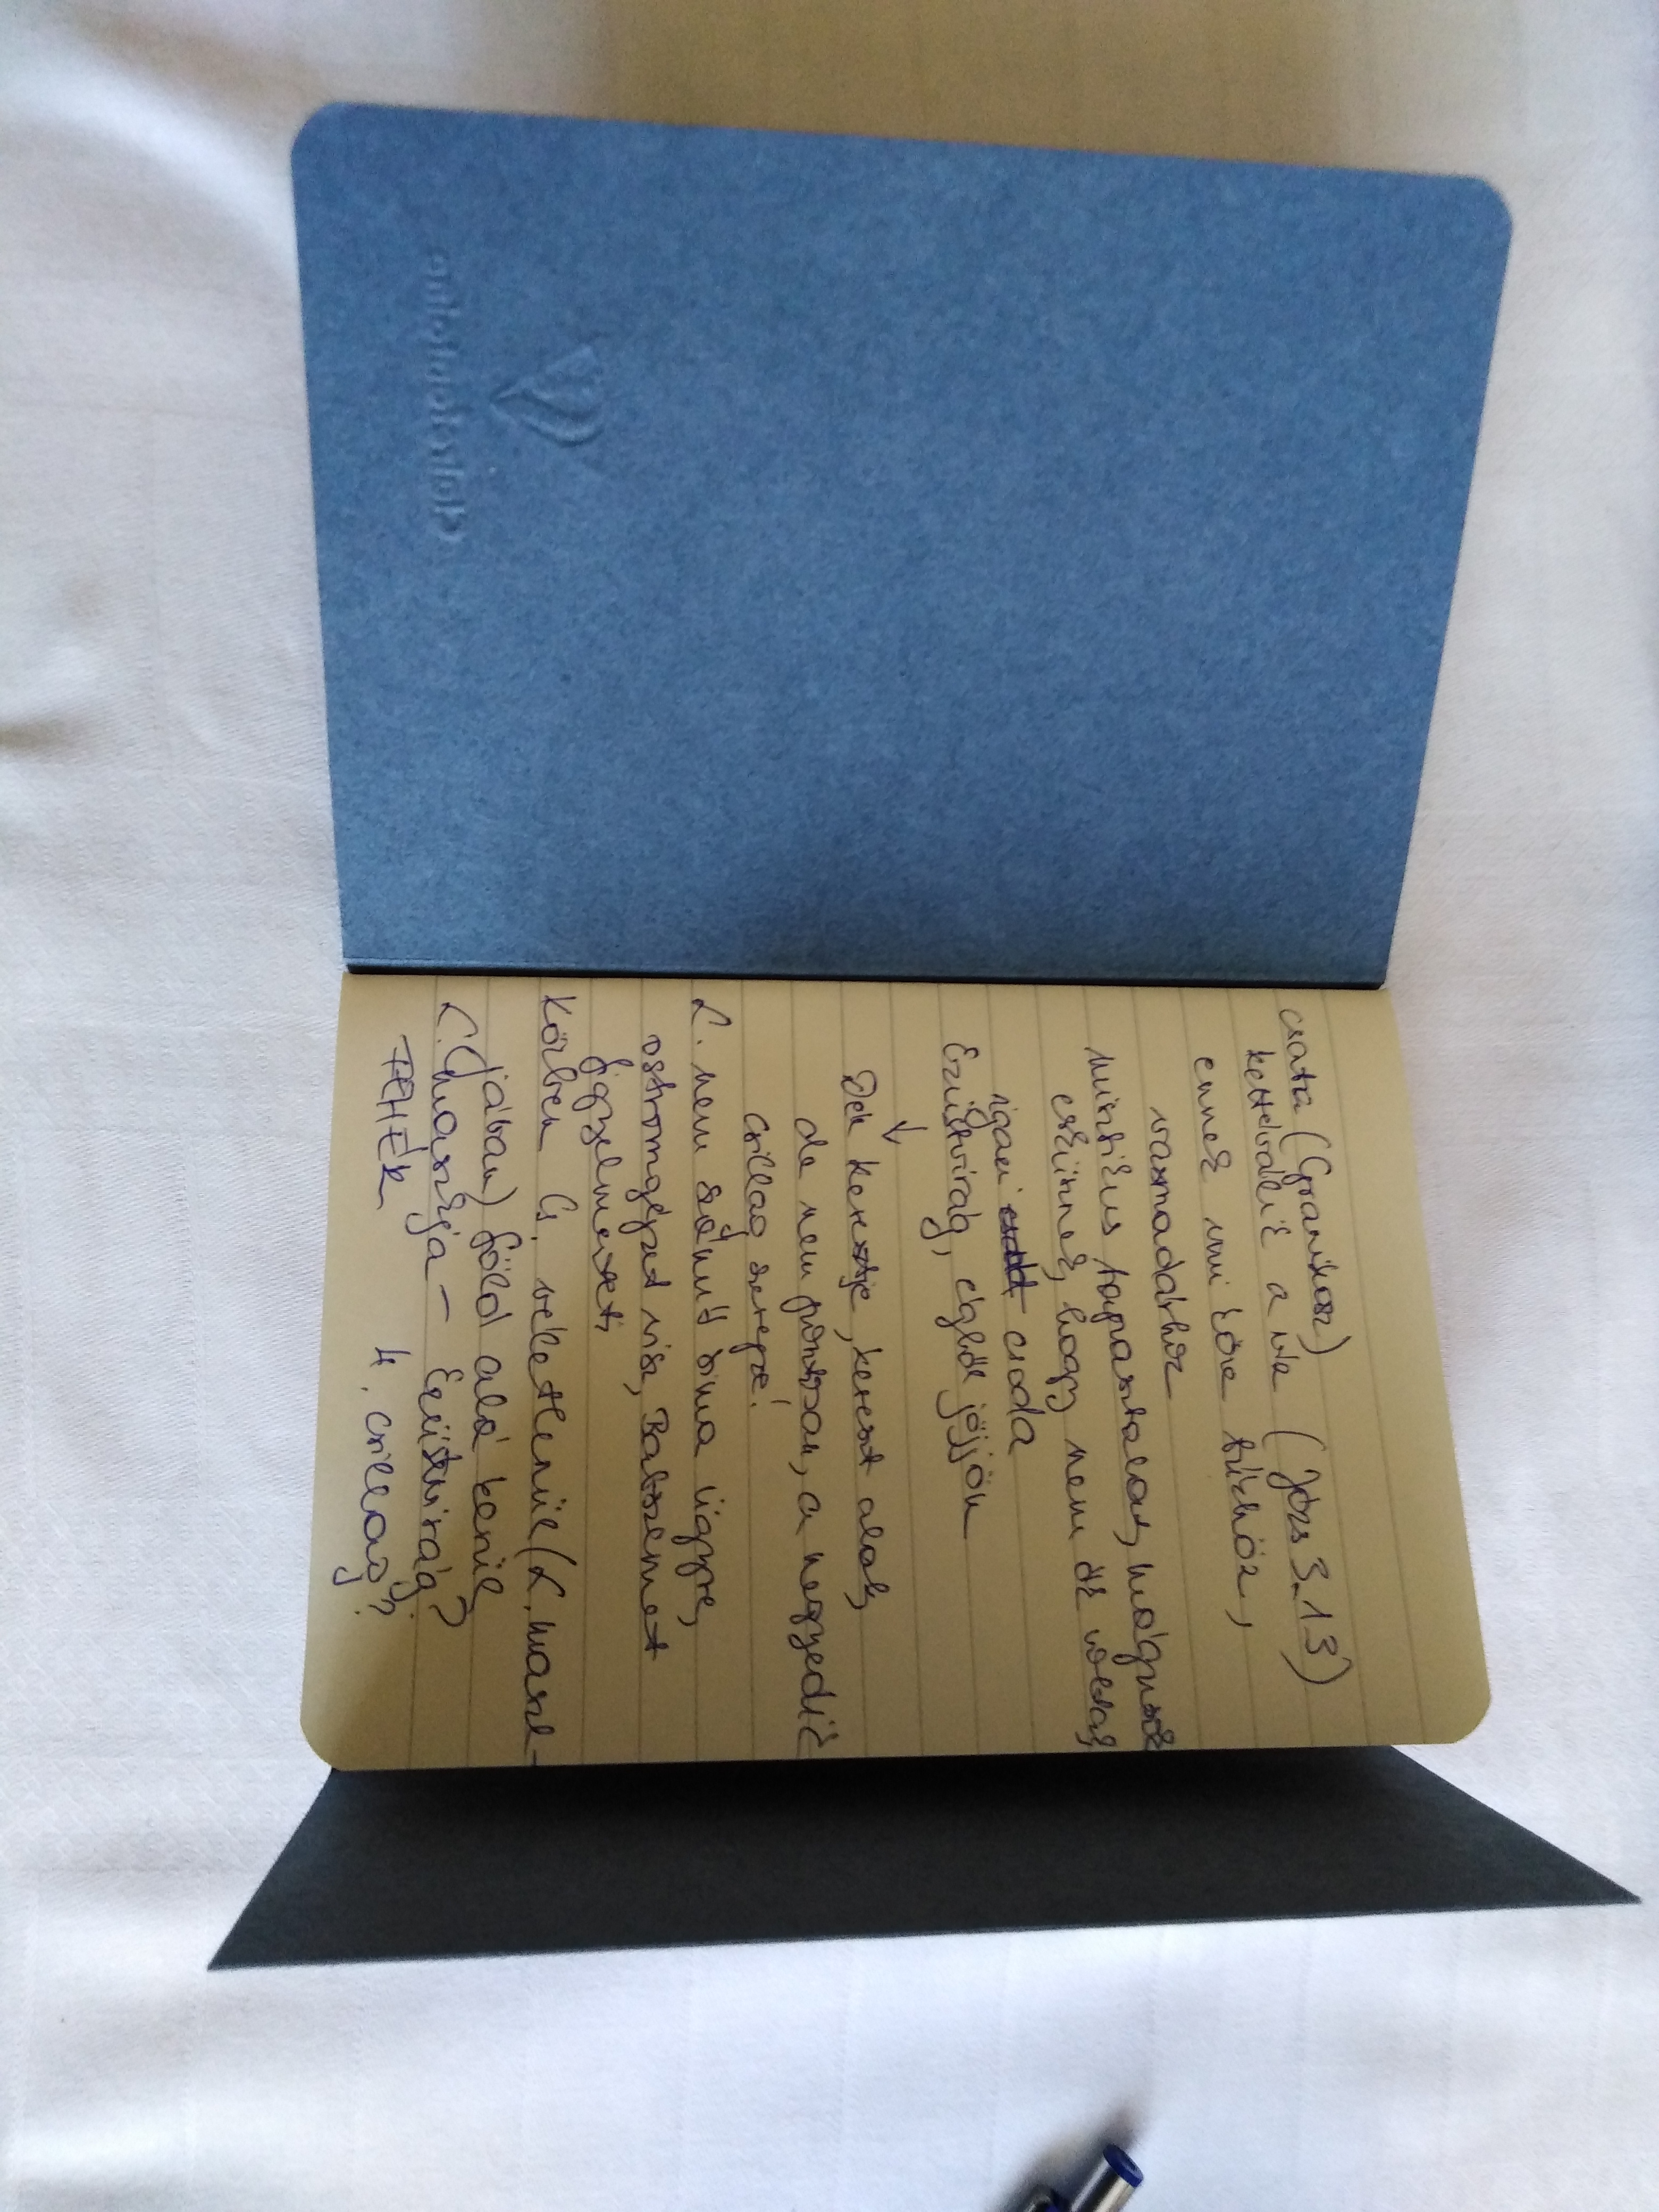 csata (Granikosz)
kettéválik a víz (Józs 3.13)
ennek mi köze tűzhöz,
vasmadárhoz
misztikus tapasztalat, mágusok
esküsznek, hogy nem ők voltak,
igazi csoda
Ezüstvirág, égből jöjjön
↓
Dél keresztje, kereszt alak,
de nem pontosan, a negyedik
csillag szerepe!
L. nem számít sima ügyre,
ostromgépet visz, Batszemet
figyelmezteti
Közben Cs. véletlenül (L. maszk-
jában) föld alá kerül
L. maszkja - Ezüstvirág?
FEHÉR 4. csillag?